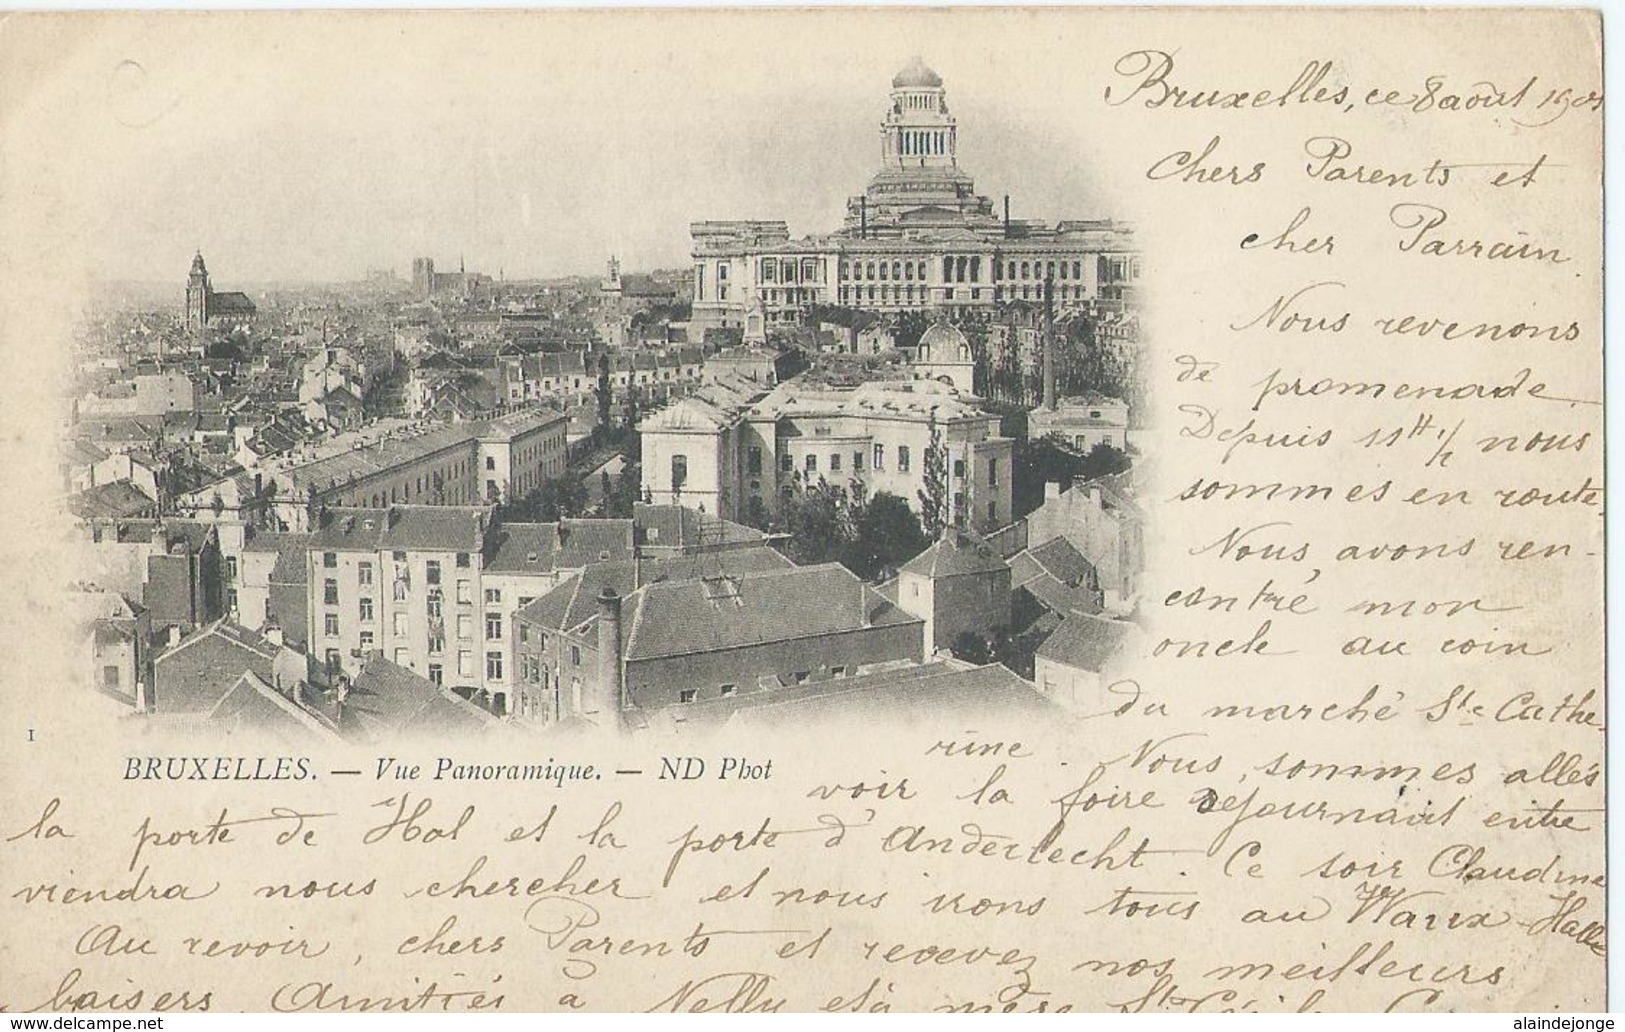 Bruxelles, ce 8 août 1901
Chers Parents et
cher Parrain.
Nous revenons
de promenade.
Depuis 11H 1/2 nous
sommes en route.
Nous avons ren-
contré mon
oncle au coin
du marché Ste Cathe-
rine. Nous sommes allés
voir la foire séjournant entre
la porte de Hal et la porte d'Anderlecht. Ce soir Claudine
viendra nous chercher et nous irons tous au Waux-Halle
Au revoir, chers Parents et recevez nos meilleurs
baisers. Amitiés à Nelly et à mère Ste
1
BRUXELLES. — Vue Panoramique. — ND Phot
alaindejonge